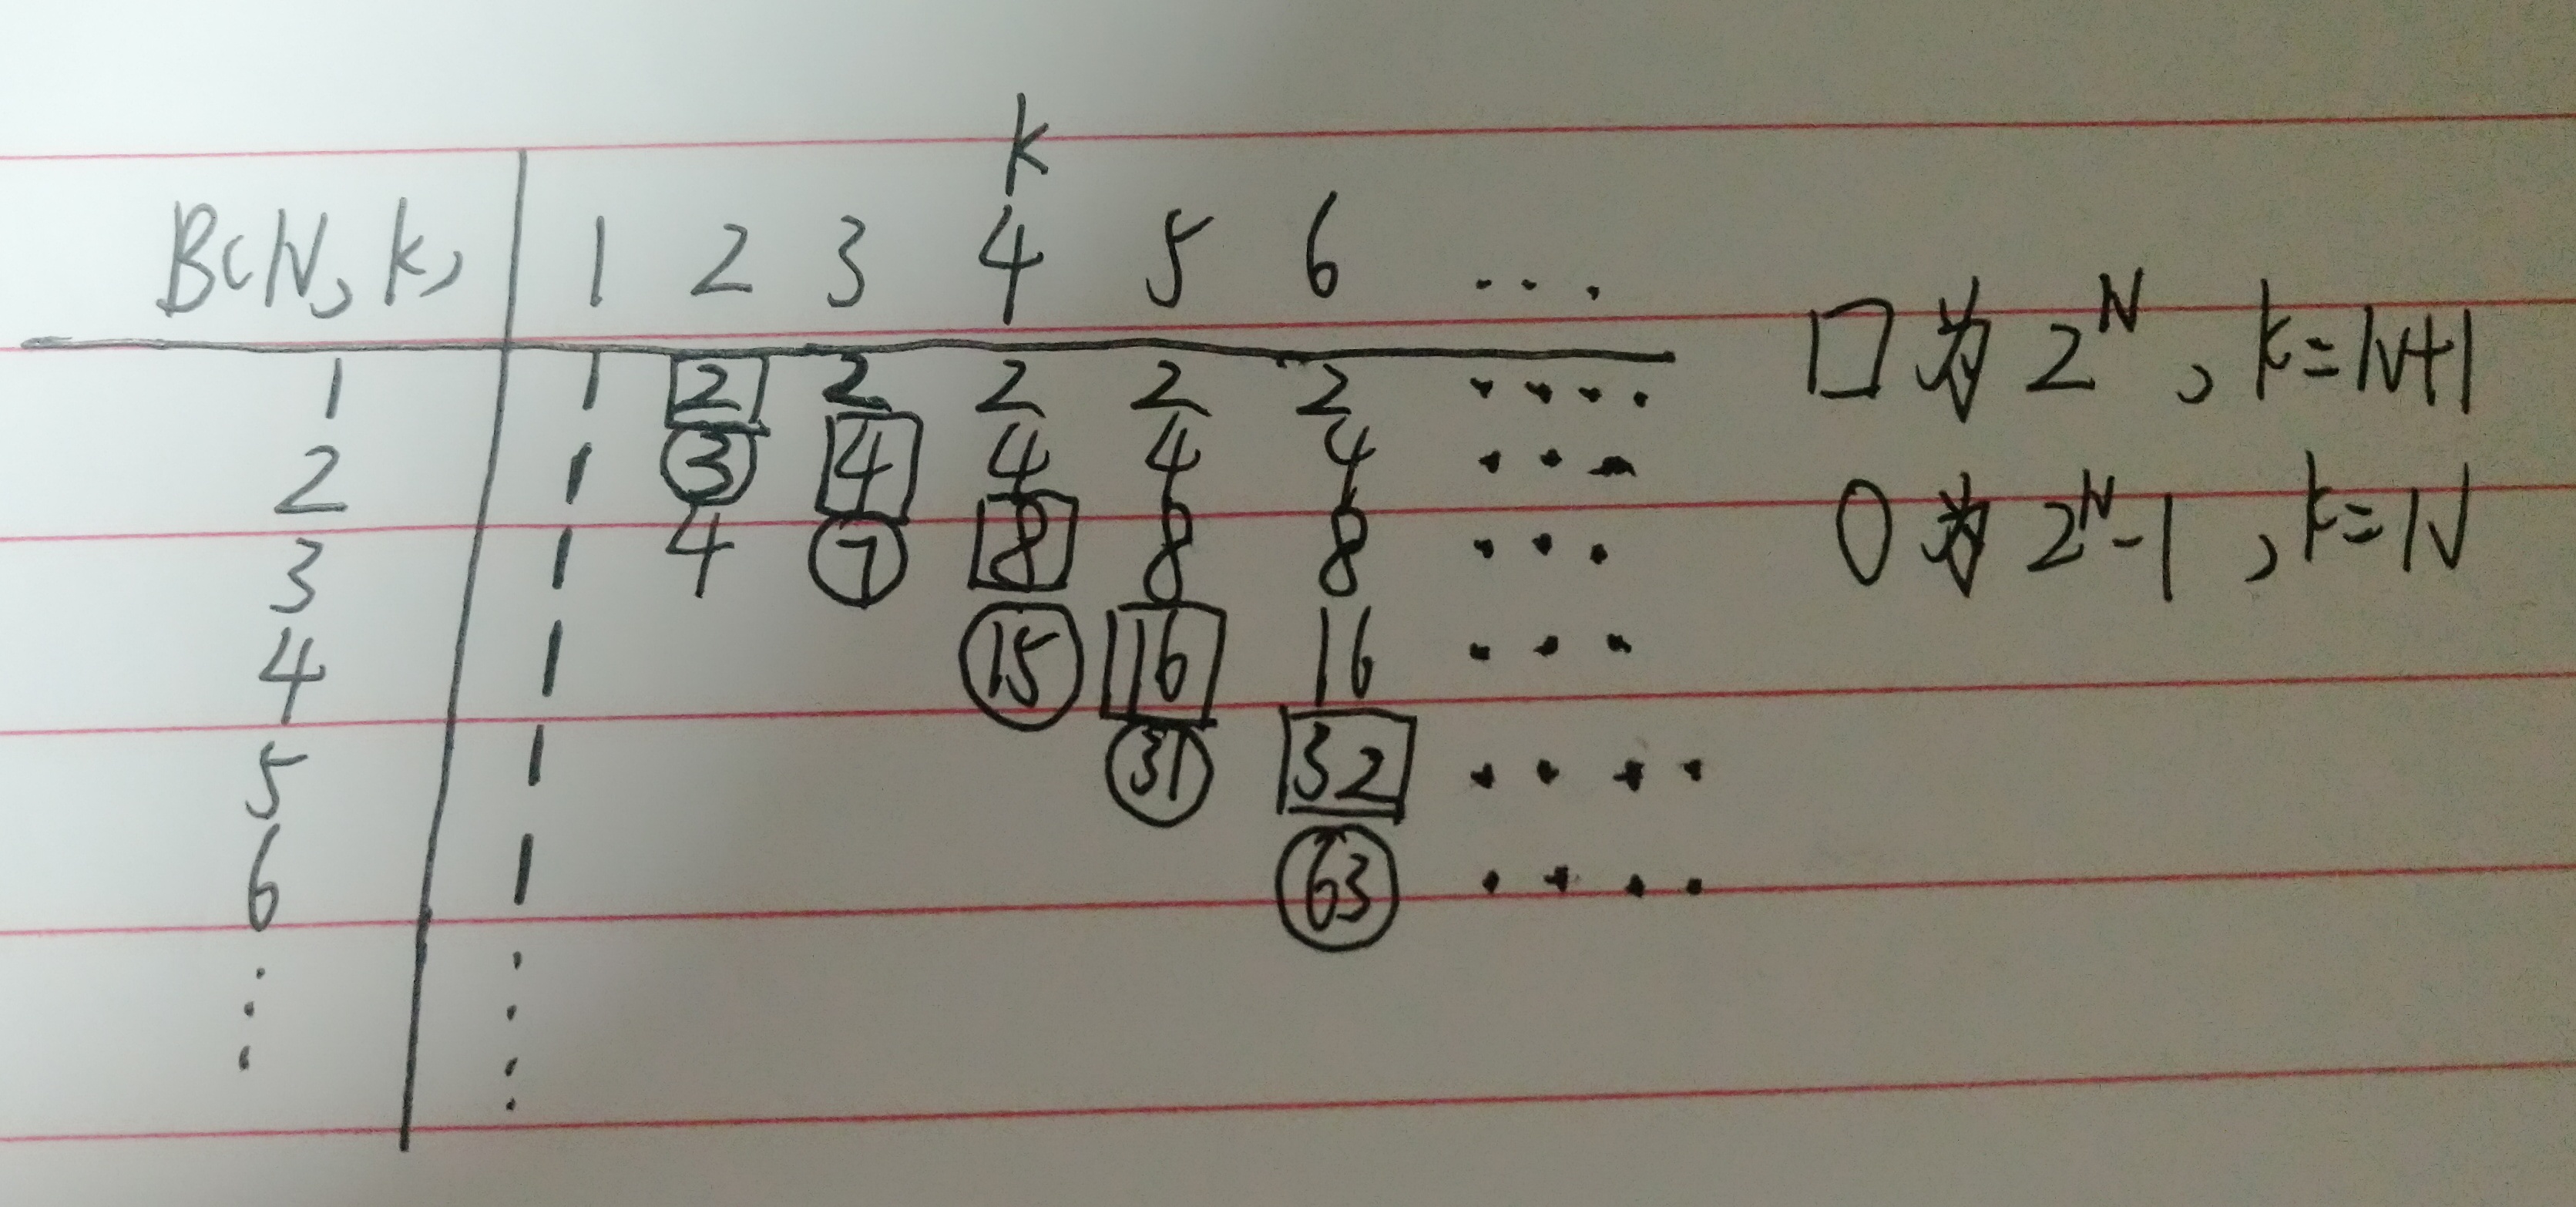 k
B(N, k) 1 2 3 4 5 6 ...
1 1 2 2 2 2 2 ....
2 1 3 4 4 4 4 ...
3 1 4 7 8 8 8 ...
4 1 15 16 16 ...
5 1 31 32 ....
6 1 63 ....
□为 2^N, k=N+1
○为 2^N-1, k=N